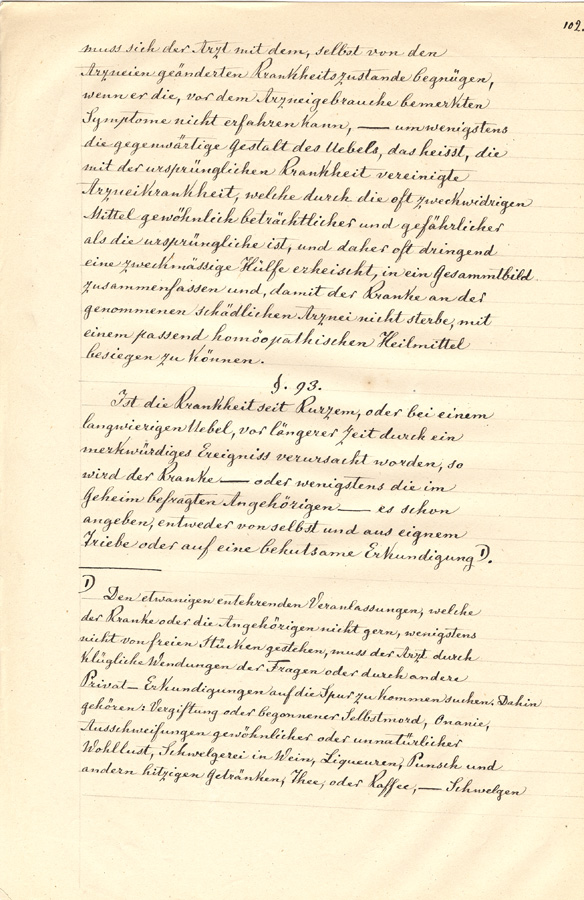 102.
muss sich der Arzt mit dem, selbst von den
Arzneien geänderten Krankheitszustande begnügen,
wenn er die, vor dem Arzneigebrauche bemerkten
Symptome nicht erfahren kann, — um wenigstens
die gegenwärtige Gestalt des Uebels, das heisst, die
mit der ursprünglichen Krankheit vereinigte
Arzneikrankheit, welche durch die oft zweckwidrigen
Mittel gewöhnlich beträchtlicher und gefährlicher
als die ursprüngliche ist, und daher oft dringend
eine zweckmässige Hülfe erheischt, in ein Gesammtbild
zusammenfassen und, damit der Kranke an der
genommenen schädlichen Arznei nicht sterbe, mit
einem passend homöopathischen Heilmittel
besiegen zu können.
§. 93.
Ist die Krankheit seit Kurzem, oder bei einem
langwierigen Uebel, vor längerer Zeit durch ein
merkwürdiges Ereigniss verursacht worden, so
wird der Kranke — oder wenigstens die im
Geheim befragten Angehörigen — es schon
angeben, entweder von selbst und aus eignem
Triebe oder auf eine behutsame Erkundigung 1).
1) Den etwanigen entehrenden Veranlassungen, welche
der Kranke oder die Angehörigen nicht gern, wenigstens
nicht von freien Stücken gestehen, muss der Arzt durch
klügliche Wendungen der Fragen oder durch andere
Privat-Erkundigungen auf die Spur zu kommen suchen. Dahin
gehören: Vergiftung oder begonnener Selbstmord, Onanie,
Ausschweifungen gewöhnlicher oder unnatürlicher
Wohllust, Schwelgerei in Wein, Liqueuren, Punsch und
andern hitzigen Getränken, Thee, oder Kaffee, — Schwelgen